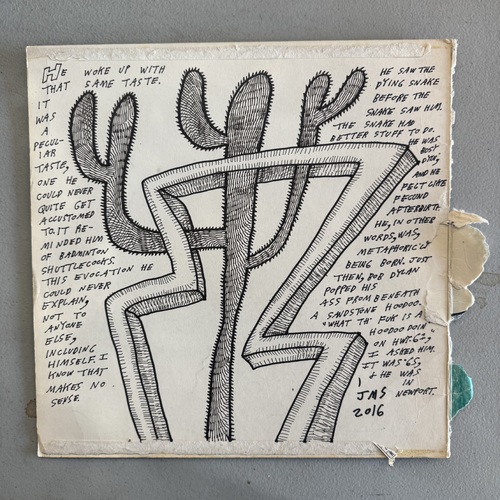 HE WOKE UP WITH
THAT SAME TASTE.
IT
WAS
A
PECUL-
IAR
TASTE,
ONE HE
COULD NEVER
QUITE GET
ACCUSTOMED
TO. IT RE-
MINDED HIM
OF BADMINTON
SHUTTLECOCKS.
THIS EVOCATION HE
COULD NEVER
EXPLAIN,
NOT TO
ANYONE
ELSE,
INCLUDING
HIMSELF. I
KNOW THAT
MAKES NO
SENSE.
HE SAW THE
DYING SNAKE
BEFORE THE
SNAKE SAW HIM.
THE SNAKE HAD
BETTER STUFF TO DO.
HE WAS
BUSY
DYING,
AND HE
FELT LIKE
FECUND
AFTERBIRTH.
HE, IN OTHER
WORDS, WAS,
METAPHORIC'LY
BEING BORN. JUST
THEN, BOB DYLAN
POPPED HIS
ASS FROM BENEATH
A SANDSTONE HOODOO.
"WHAT TH' FUK IS A
HOODOO DOIN'
ON HWY. 61?,
I ASKED HIM.
IT WAS '65,
& HE WAS
IN
NEWPORT.
JMS
2016